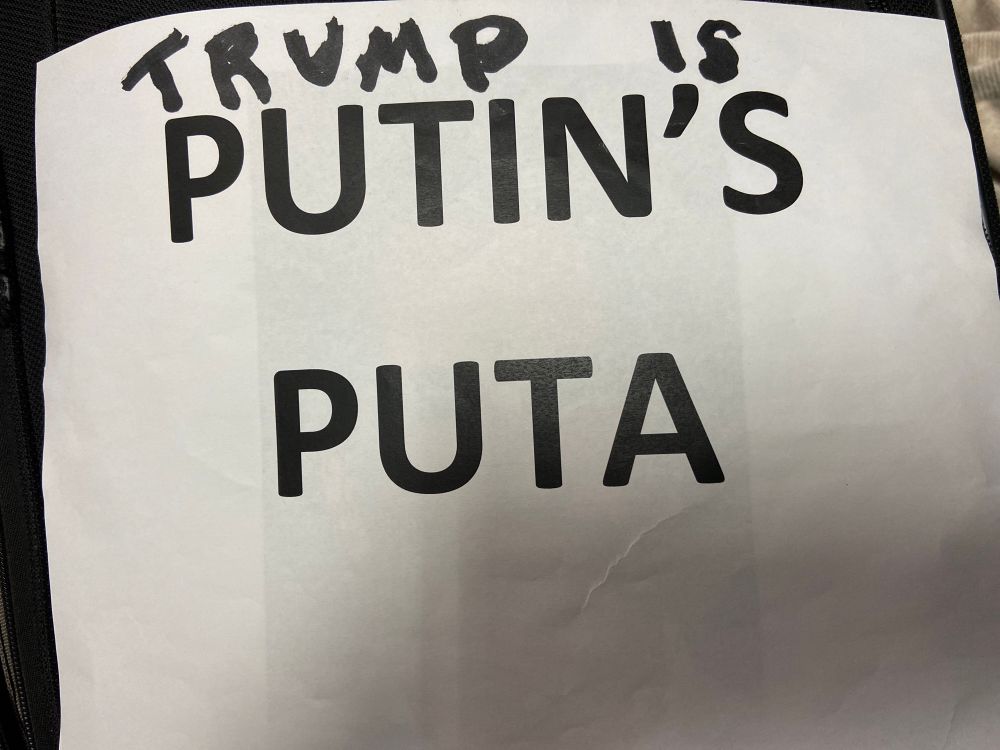 TRUMP IS
PUTIN'S
PUTA